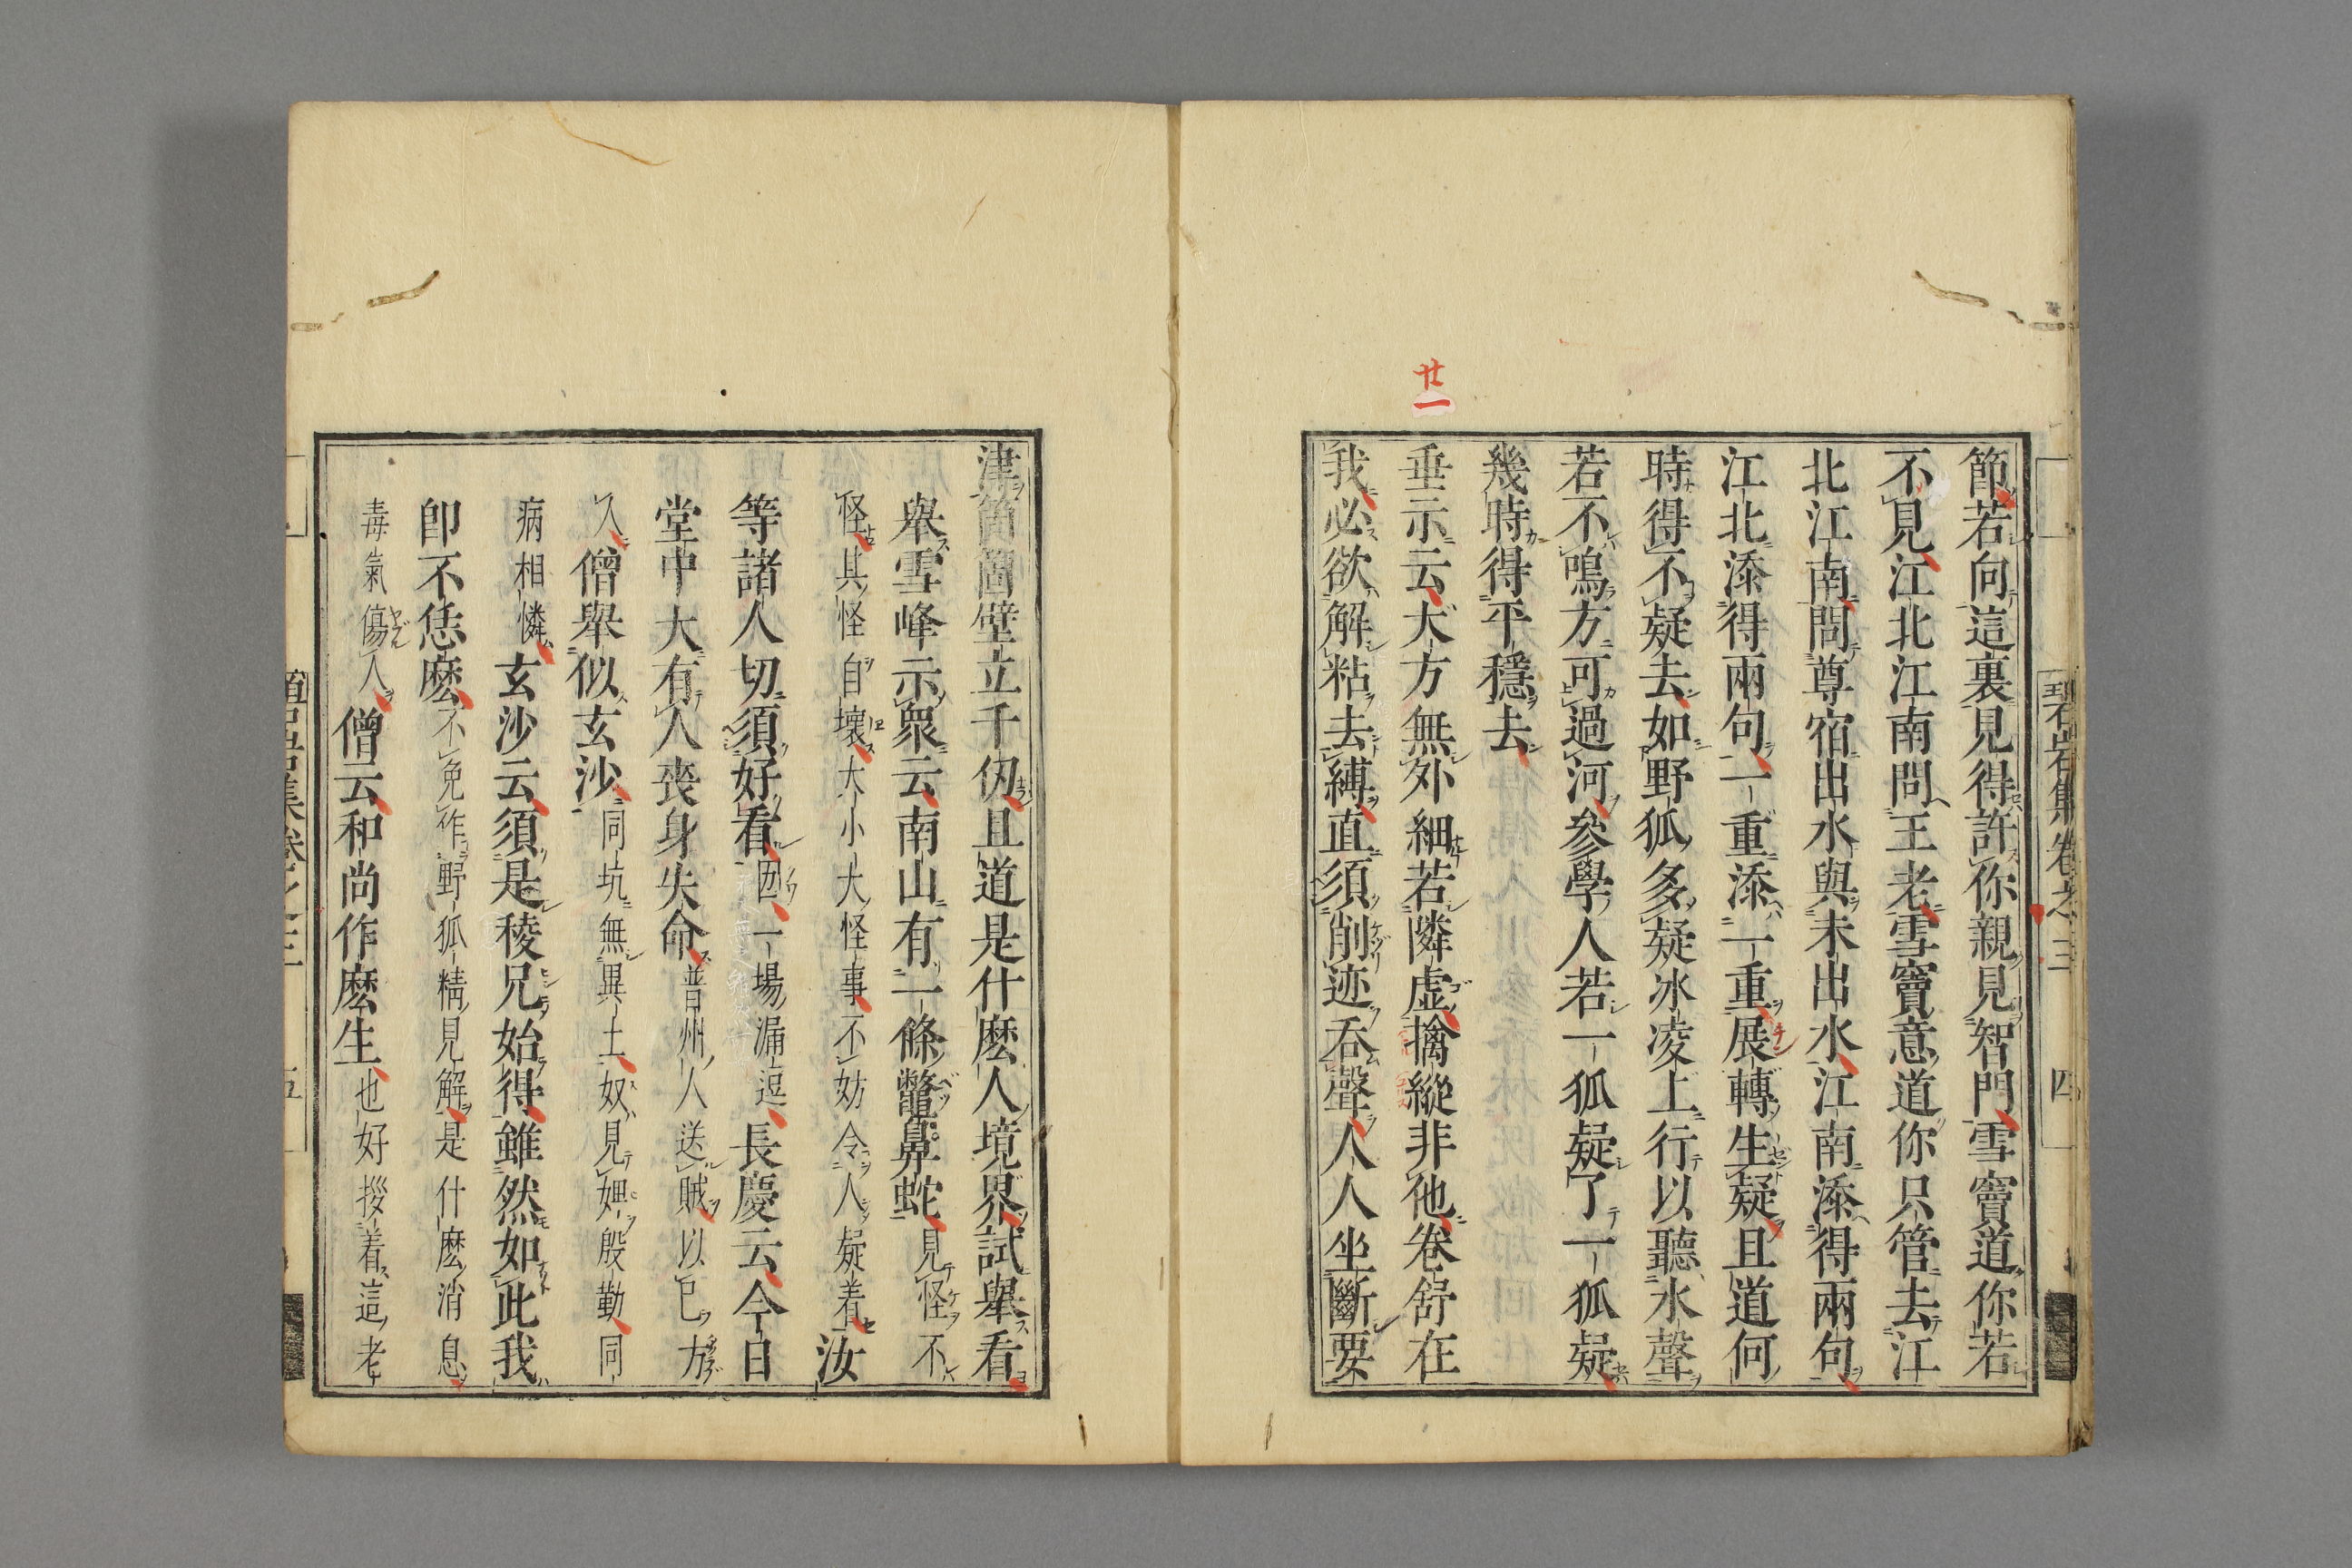 碧岩集卷之三 四
節若向這裏見得許你親見智門雪竇道你若
不見江北江南問王老雪竇意道你只管去江
北江南問尊宿出水與未出水江南添得兩句
江北添得兩句一重添一重展轉生疑且道何
時得不疑去如野狐多疑冰凌上行以聽水聲
若不鳴方可過河參學人若一狐疑了一狐疑
幾時得平穩去
廿一
垂示云大方無外細若隣虛擒縱非他卷舒在
我必欲解粘去縛直須削迹吞聲人人坐斷要
津箇箇壁立千仭且道是什麽人境界試擧看
擧雪峰示衆云南山有一條鼈鼻蛇見怪不
怪其怪自壞大小大怪事不妨令人疑着汝
等諸人切須好看㘞一場漏逗長慶云今日
堂中大有人喪身失命普州人送賊以己方
人僧擧似玄沙同坑無異土奴見婢殷勤同
病相憐玄沙云須是稜兄始得雖然如此我
卽不恁麽不免作野狐精見解是什麽消息
毒氣傷人僧云和尚作麽生也好拶着這老
五